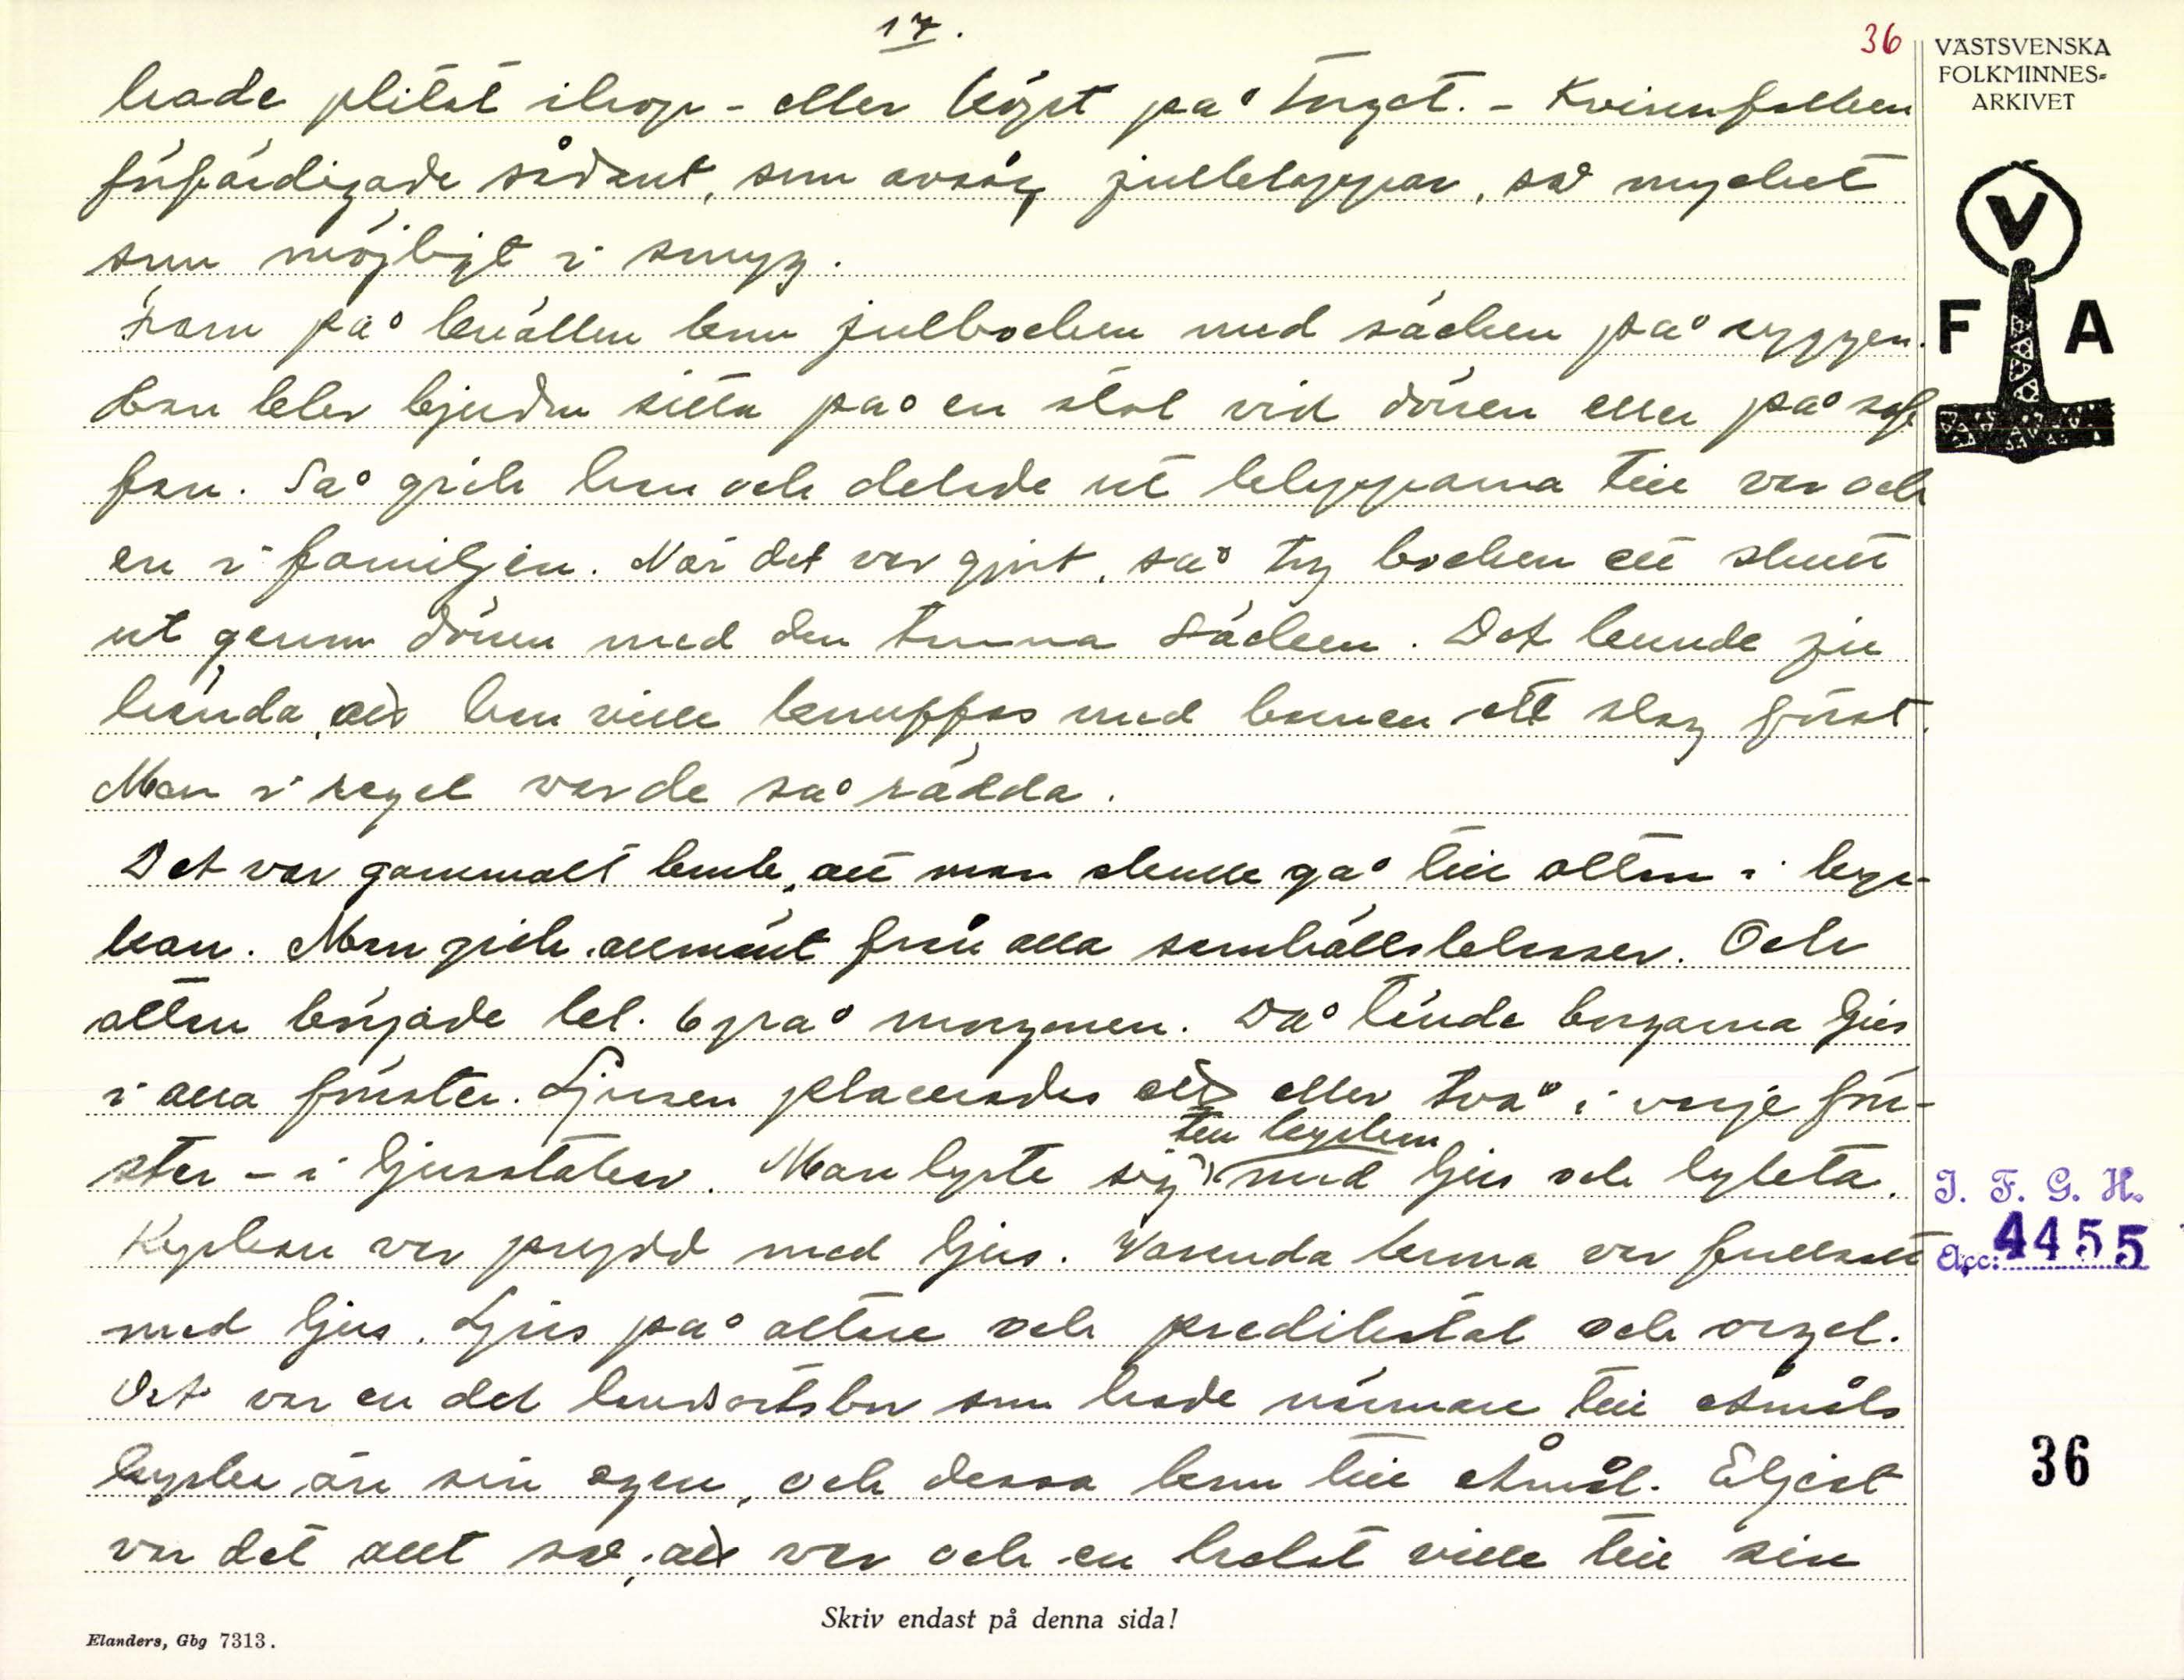 17.
36
VÄSTSVENSKA
FOLKMINNES-
ARKIVET
hade plitat ihop - eller köpt på torget. - Kvinnfolken
förfärdigade sådant, som avsåg julklappar, så mycket
som möjligt i smyg.
Fram på kvällen kom julbocken med säcken på ryggen.
Han blev bjuden sitta på en stol vid dörren eller på sof-
fan. Så gick han och delade ut klapparna till var och
en i familjen. När det var gjort, så tog bocken ett skutt
ut genom dörren med den tomma säcken. Det kunde ju
hända, att han ville knuffas med barnen ett slag först.
Men i regel var de så rädda.
Det var gammalt bruk, att man skulle gå till ottan i kyr-
kan. Man gick allmänt från alla samhällsklasser. Och
ottan började kl. 6 på morgonen. Då tände borgarna ljus
i alla fönster. Ljusen placerades ett eller två i varje fön-
till kyrkan
ster - i ljusstakar. Man lyste sig med ljus och lykta.
Kyrkan var prydd med ljus. Varenda krona var fullsatt
med ljus. Ljus på altare och predikstol och orgel.
Det var en del landsortsbor som hade närmare till Åmåls
kyrka än sin egen, och dessa kom till Åmål. Eljest
var det allt så, att var och en helst ville till sin
V
F A
I. F. G. H.
Acc: 4455
36
Skriv endast på denna sida!
Elanders, Gbg 7313.